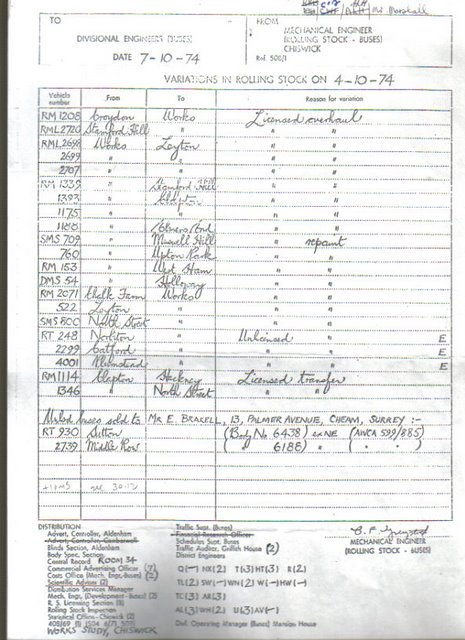 Mr Marshall
TO
DIVISIONAL ENGINEERS (BUSES)
DATE 7-10-74
FROM
MECHANICAL ENGINEER
(ROLLING STOCK - BUSES)
CHISWICK
Ref 508/1
VARIATIONS IN ROLLING STOCK ON 4-10-74
Vehicle number From To Reason for variation
RM 1208 Croydon Works Licensed overhaul
RML 2720 Stamford Hill " " "
RML 2698 Works Leyton " "
2699 " " " "
2707 " " " "
RM 1339 " Stamford Hill " "
1393 " " "
1175 " " " "
1188 " Potters Bar " "
SMS 709 " Muswell Hill " repaint
760 " Upton Park " "
RM 153 " West Ham " "
DMS 54 " Holloway " "
RM 2071 Chalk Farm Works " "
522 Leyton " " "
SMS 800 North Street " " "
RT 248 Norbiton " Unlicensed " E
2299 Catford " " " E
4001 Plumstead " " " E
RM 1114 Clapton Hackney Licensed transfer
1346 " North Street " "
Unlcd buses sold to MR E. BRAKELL, 13, PALMER AVENUE, CHEAM, SURREY :-
RT 930 Sutton (Body No 6438) ex NE (AWCA 599/885)
2739 Middle Row ( " 6188) " ( " " )
DISTRIBUTION
Advert. Controller, Aldenham
Advert. Controller, Camberwell
Blinds Section, Aldenham
Body Spec. Section,
Central Record ROOM 34
Commercial Advertising Officer (7)
Costs Office (Mech. Engr. Buses) (2)
Scientific Adviser (2)
Distribution Services Manager
Mech. Engr. (Development - Buses) (2)
R.S. Licensing Section (8)
Rolling Stock Inspection
Statistical Office - Chiswick (2)
WORKS STUDY, CHISWICK
Traffic Supt. (Buses)
Financial Research Officer
Schedules Supt. Buses
Traffic Auditor, Griffith House (2)
District Engineers
Q(-) NX(2) T(3) HT(3) R(2)
TL(2) SW(-) WN(2) W(-) HW(-)
TC(3) AR(3)
AL(3) WH(2) U(3) AV(-)
Divl. Operating Manager (Buses) Mansion House
MECHANICAL ENGINEER
(ROLLING STOCK - BUSES)